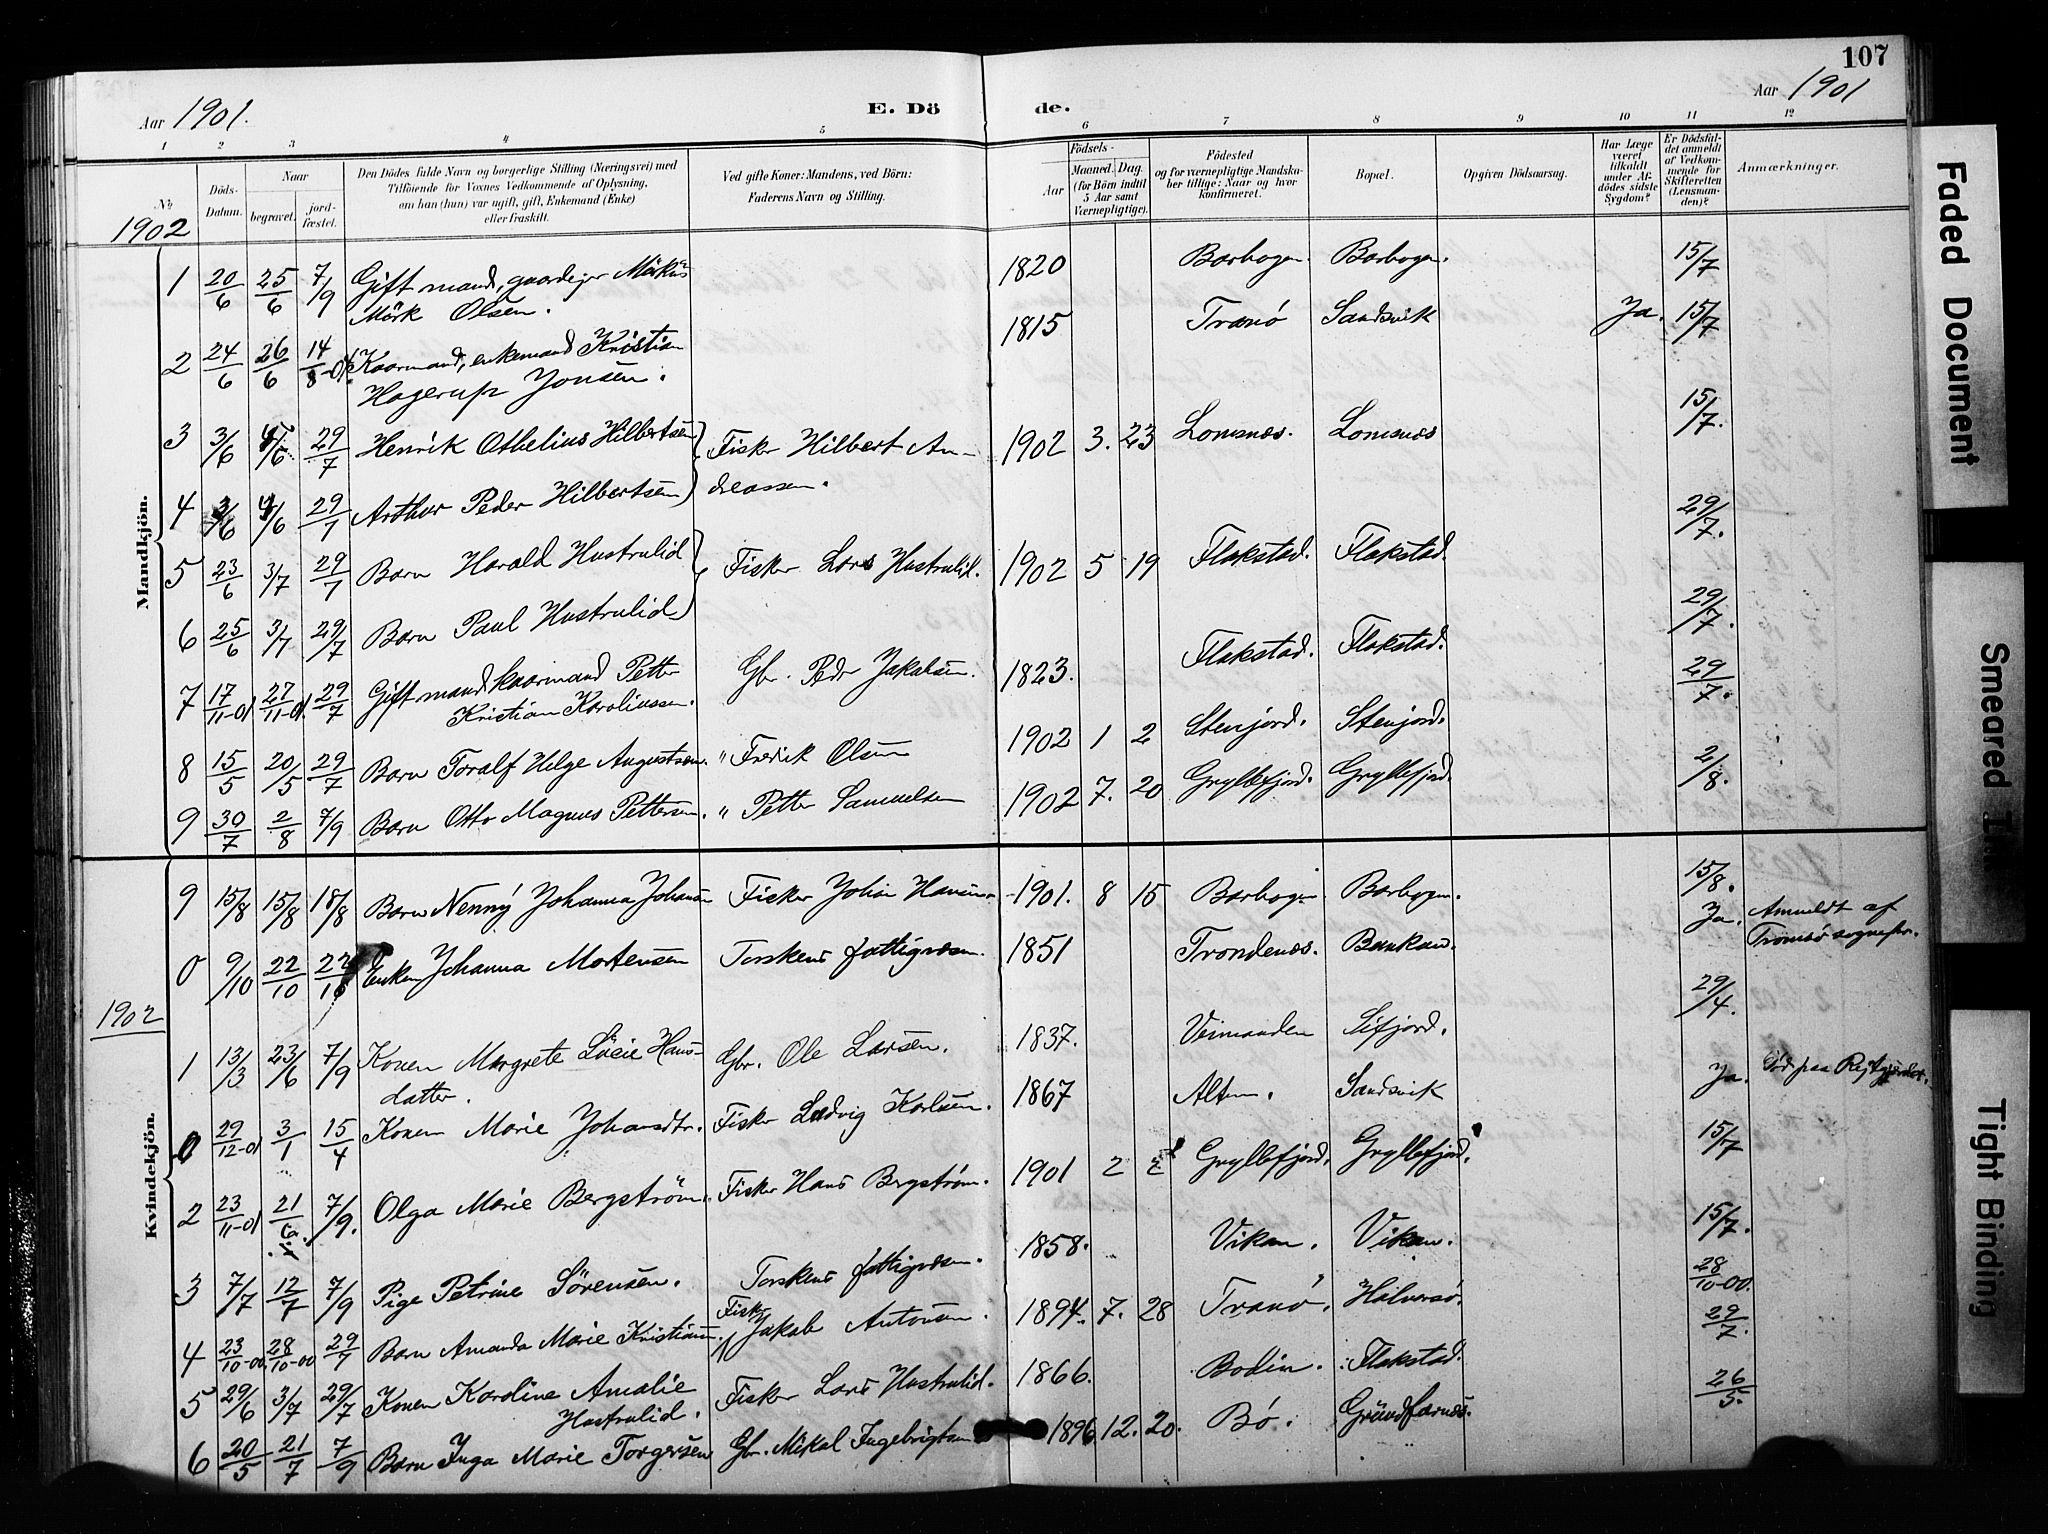 107
Aar 1901. E. Dö de. Aar 1901
1 2 3 4 5 6 7 8 9 10 11 12
№ Döds-Datum. Naar begravet. jord-fæstet. Den Dödes fulde Navn og borgerlige Stilling (Næringsvei) med Tilföiende for Voxnes Vedkommende af Oplysning, om han (hun) var ugift, gift, Enkemand (Enke) eller fraskilt. Ved gifte Koner: Mandens, ved Börn: Faderens Navn og Stilling. Födsels- Aar Maaned. Dag. (for Börn indtil 5 Aar samt Værnepligtige). Födested og for værnepligtige Mandskaber tillige: Naar og hvor konfirmeret. Bopæl. Opgiven Dödsaarsag. Har Læge været tilkaldt under Afdödes sidste Sygdom? Er Dödsfaldet anmeldt af Vedkommende for Skifteretten (Lensmanden)? Anmærkninger.
1902
Mandkjön.
1 20/6 25/6 7/9 Gift mand, gaardejer Mörk Olsen. 1820 Barbogen. Barbogen. 15/7
2 24/6 26/6 14/8-01 Kaarmand, enkemand Kristian Hagerup Jonsen. 1815 Tranö Sandsvik Ja. 15/7
3 3/6 /6 29/7 Henrik Othelius Hilbertsen Fisker Hilbert An- 1902 3. 23 Lomsnes. Lomsnes 15/7.
4 3/6 4/6 29/7 Arthur Peder Hilbertsen dreassen. 29/7.
5 23/6 3/7 29/7 Barn Harald Hustrulid Fisker Lars Hustrulid. 1902 5 19 Flakstad. Flakstad.
6 25/6 3/7 29/7 Barn Paul Hustrulid 29/7.
7 17/11-01 27/11-01. 29/7 Gift mand kaarmand Petter Kristian Karoliussen. Gbr. Peder Jakobsen. 1823. Flakstad. Flakstad. 29/7.
8 15/5 20/5 29/7 Barn Toralf Helge Augustsen. " Fredrik Olsen 1902 1 2 Stenjord. Stenjord.
9 30/7 2/8 7/9 Barn Otto Magnus Pettersen. " Petter Samuelsen 1902 7. 20 Gryllefjord. Gryllefjord. 2/8.
Kvindekjön.
9 15/8 15/8 18/8 Barn Nenny Johanna Johansen Fisker Johan Hansen 1901. 8 15 Barbogen Barbogen. 15/8.
0 9/10 22/10 22/10 Enken Johanna Mortensen Torskens fattigvæsen. 1851 Trondenæs. Bankan. Ja. Anmeldt af Tromsö sognepr.
1902
1 13/3 23/6 7/9 Konen Margrete Lucie Hans-datter. Gbr. Ole Larsen. 1837. Sifjord. 29/4.
0 29/12-01 3/1 15/4 Konen Marie Johansdtr. Fisker Ludvig Karlsen. 1867 Alten. Sandsvik Ja. Död paa
2 23/11-01 21/6. 7/9. Olga Marie Bergström. Fisker Hans Bergström. 1901 2 2 Gryllefjord. Gryllefjord. 15/7
3 7/7 12/7 7/9 Pige Petrine Sörensen. Torskens fattigvæsen. 1858. Vikan. Vikan. 15/7.
4 23/10-00 28/10-00 29/7 Barn Amanda Marie Kristians. Fisker Jakob Antonsen. 1894. 7. 28 Tranö. Halversö. 28/10-00.
5 29/6 3/7 29/7 Konen Karoline Amalie Hustrulid. Fisker Lars Hustrulid. 1866. Bodin. Flakstad. 29/7.
6 20/5 21/7 7/9 Barn Inga Marie Torgersen Gbr. Mikal Ingebrigtsen 1896 12. 20. Bö. Grundfarnes. 26/5.
Faded Document
Smeared
Tight Binding